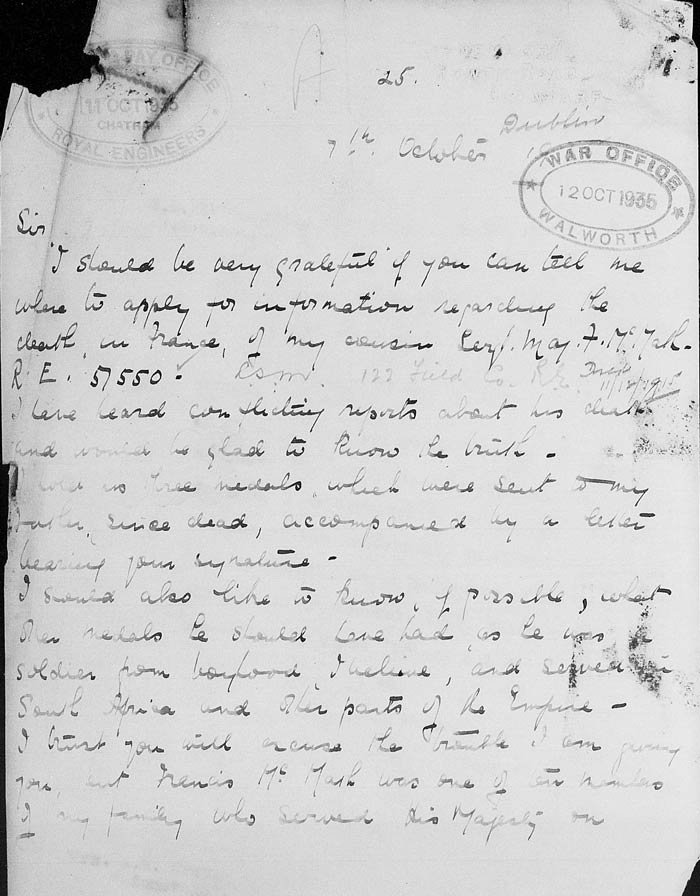 PAY OFFICE
11 OCT 1935
CHATHAM
ROYAL ENGINEERS
25.
Dublin
7th. October
WAR OFFICE
12 OCT 1935
WALWORTH
Sir
I should be very grateful if you can tell me
where to apply for information regarding the
death, in France, of my cousin Sergt. Maj. F. McMath-
R. E. 57550 - CSM. 122 Field Co. R.E.
I have heard conflicting reports about his death
and would be glad to know the truth -
hold his three medals, which were sent to my
father, since dead, accompanied by a letter
bearing your signature -
I should also like to know, if possible, what
other medals he should have had, as he was a
soldier from boyhood, I believe, and served in
South Africa and other parts of the Empire -
I trust you will excuse the trouble I am giving
you, but Francis McMath was one of ten members
of my family who served His Majesty on